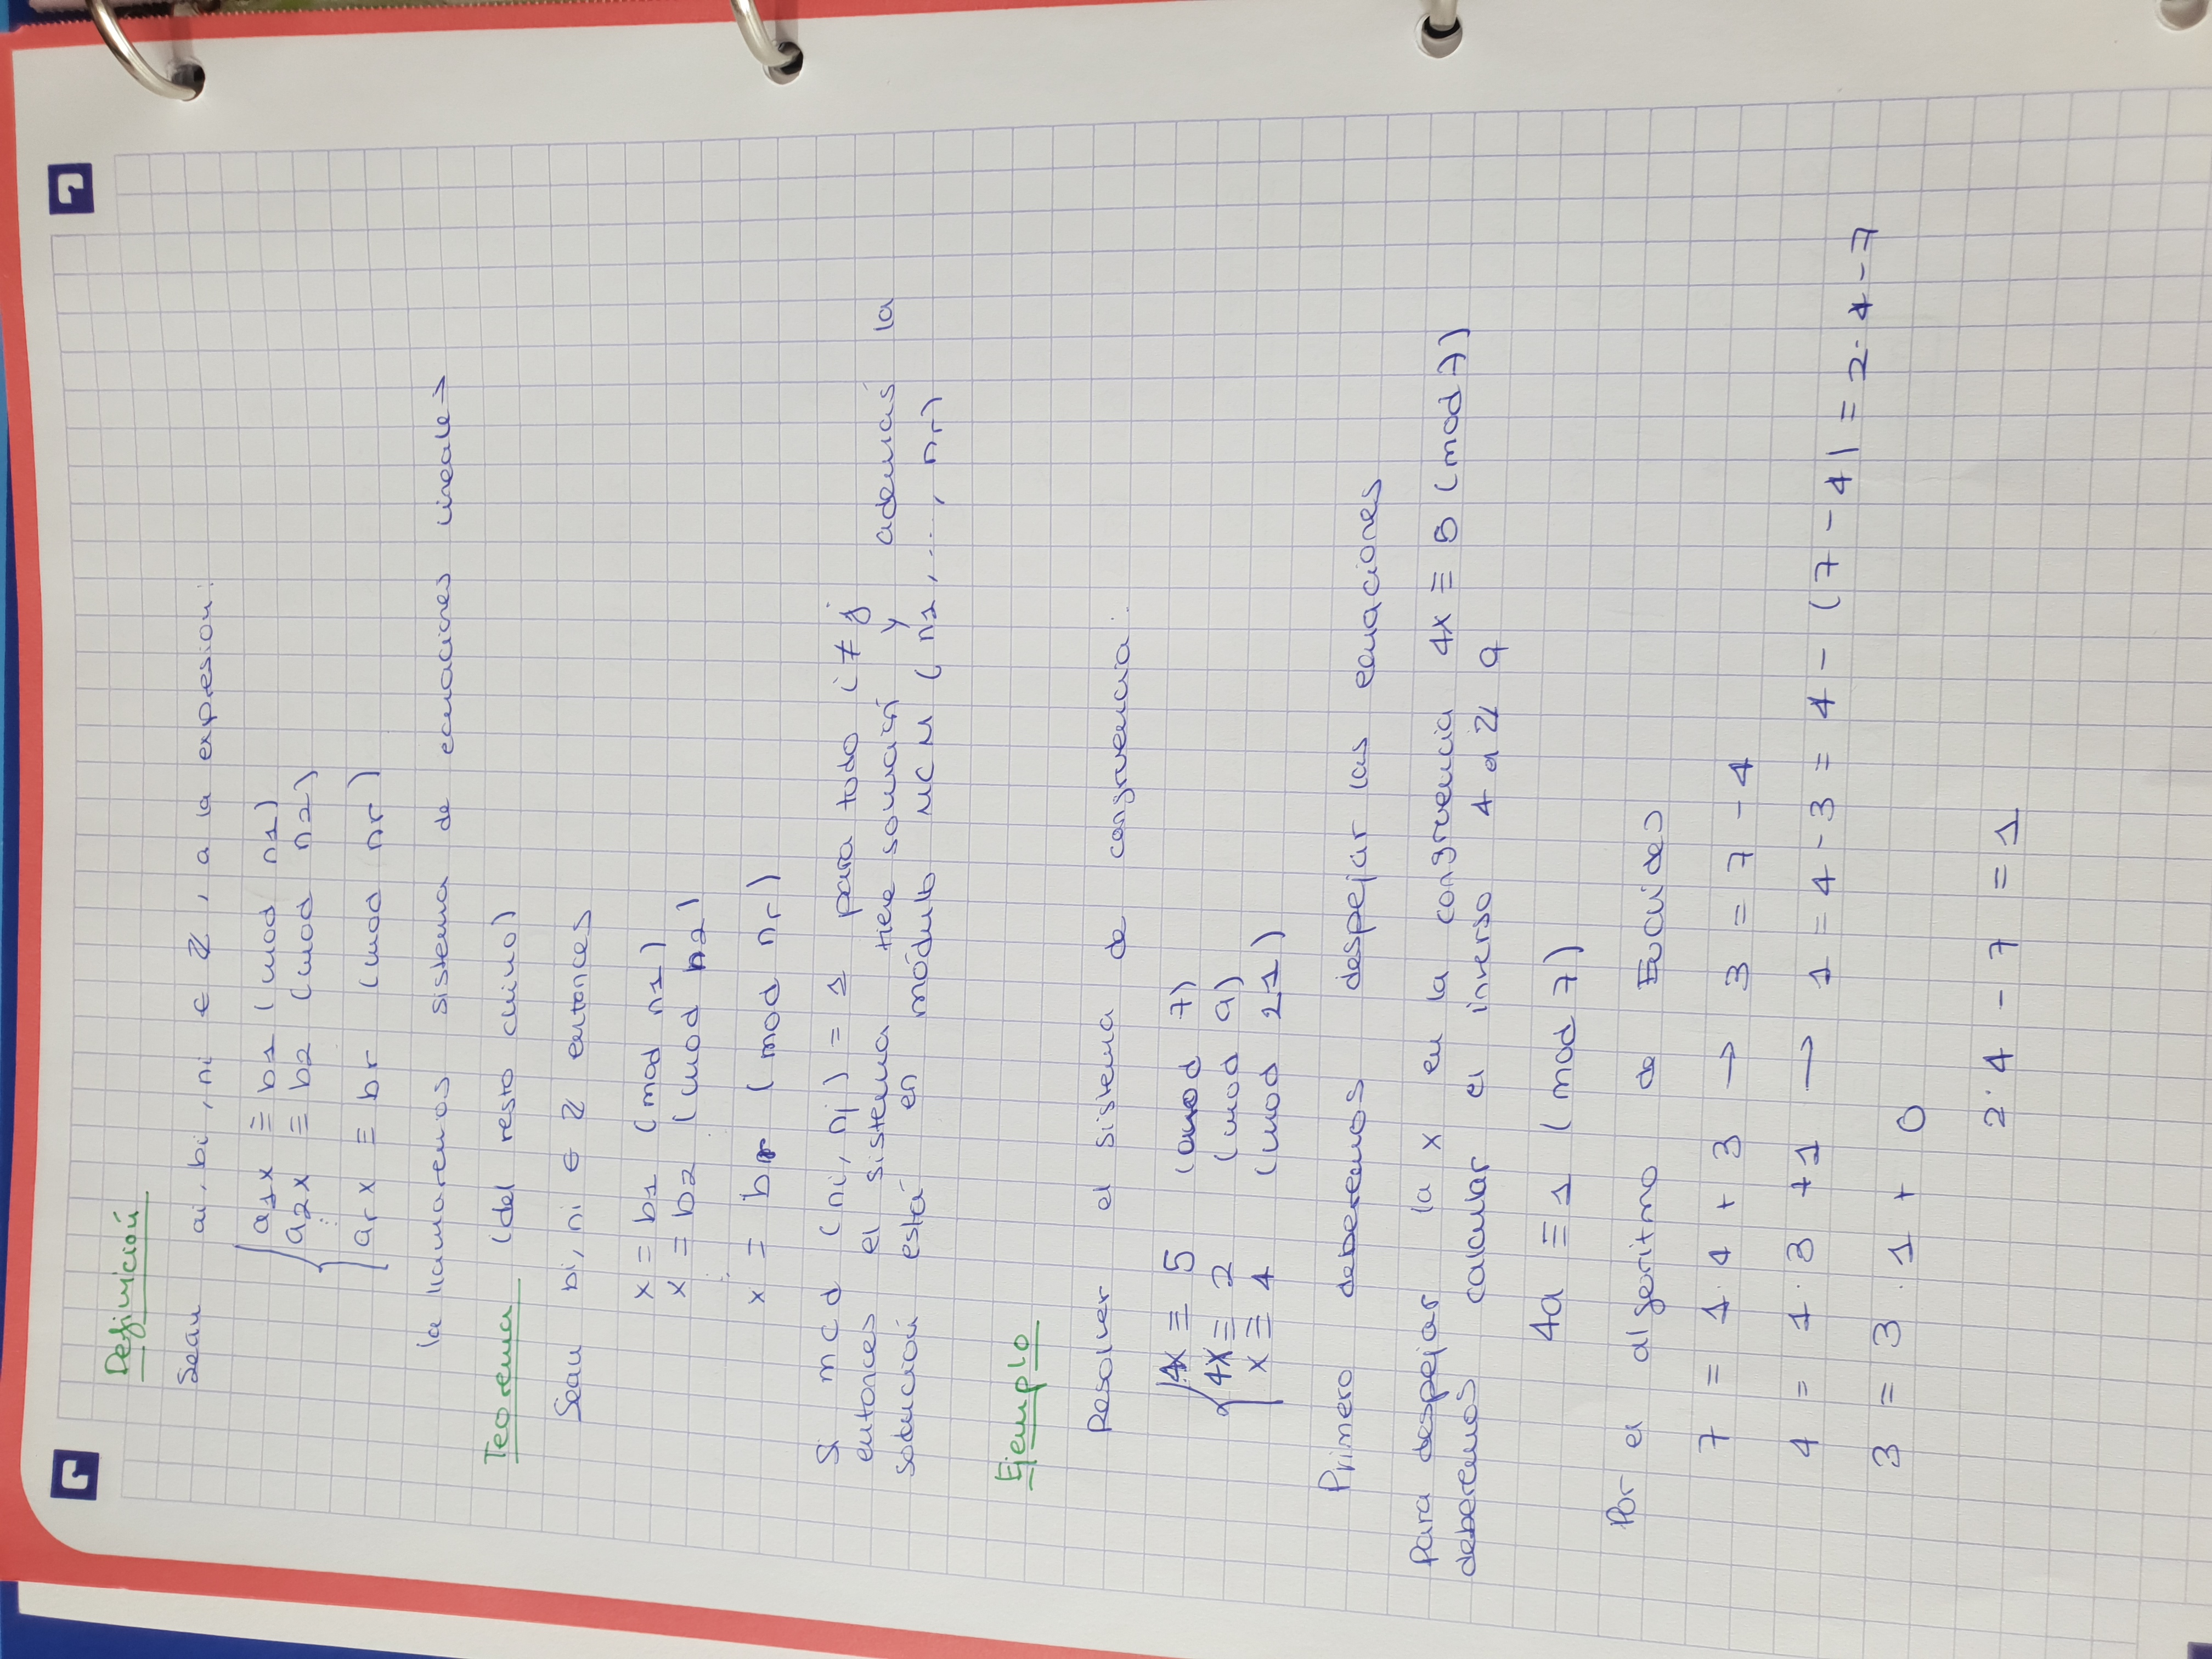 Definición
Sean ai, bi, ni ∈ ℤ, a la expresión:
a1x ≡ b1 (mod n1)
a2x ≡ b2 (mod n2)
⋮
arx ≡ br (mod nr)
la llamaremos sistema de ecuaciones lineales
Teorema (del resto chino)
Sean bi, ni ∈ ℤ entonces
x = b1 (mod n1)
x = b2 (mod n2)
⋮
x = br (mod nr)
Si mcd (ni, nj) = 1 para todo i ≠ j
entonces el sistema tiene solución y además la
solución está en módulo MCM (n1, ...., nr)
Ejemplo
Resolver el sistema de congruencia:
4x ≡ 5 (mod 7)
4x ≡ 2 (mod 9)
x ≡ 4 (mod 21)
Primero deberemos despejar las ecuaciones
Para despejar la x en la congruencia 4x ≡ 5 (mod 7)
deberemos calcular el inverso 4 a ℤ 9
4a ≡ 1 (mod 7)
Por el algoritmo de Euclides
7 = 1·4 + 3 → 3 = 7 - 4
4 = 1·3 + 1 → 1 = 4 - 3 = 4 - (7 - 4) = 2·4 - 7
3 = 3·1 + 0
2·4 - 7 = 1